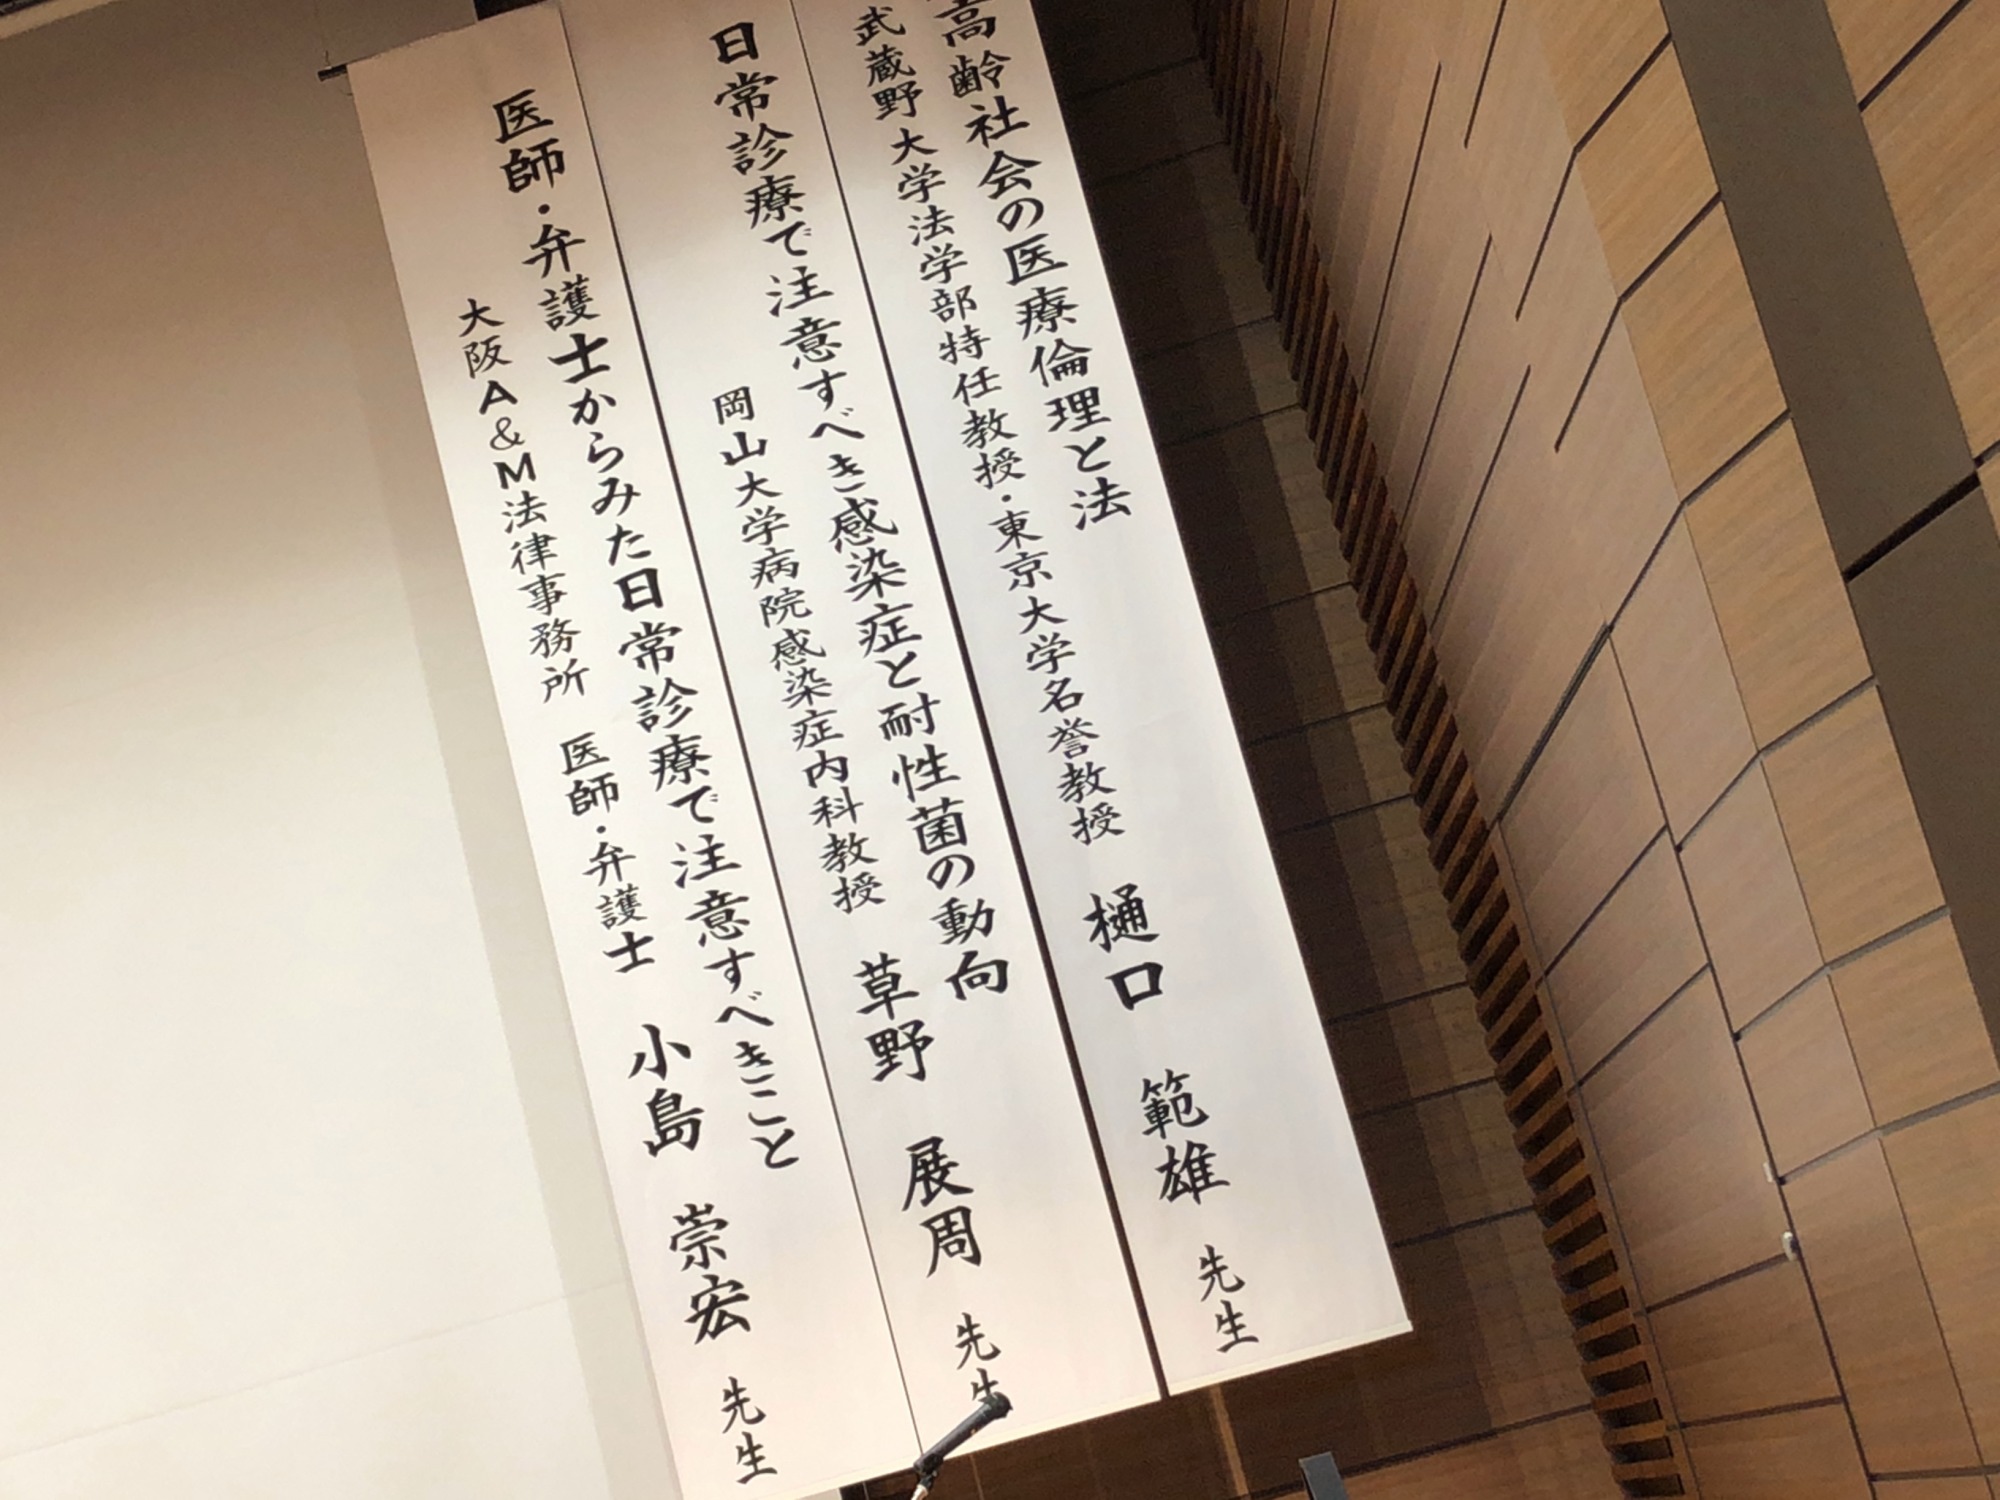 高齢社会の医療倫理と法
武蔵野大学法学部特任教授・東京大学名誉教授 樋口 範雄 先生
日常診療で注意すべき感染症と耐性菌の動向
岡山大学病院感染症内科教授 草野 展周 先生
医師・弁護士からみた日常診療で注意すべきこと
大阪A&M法律事務所 医師・弁護士 小島 崇宏 先生